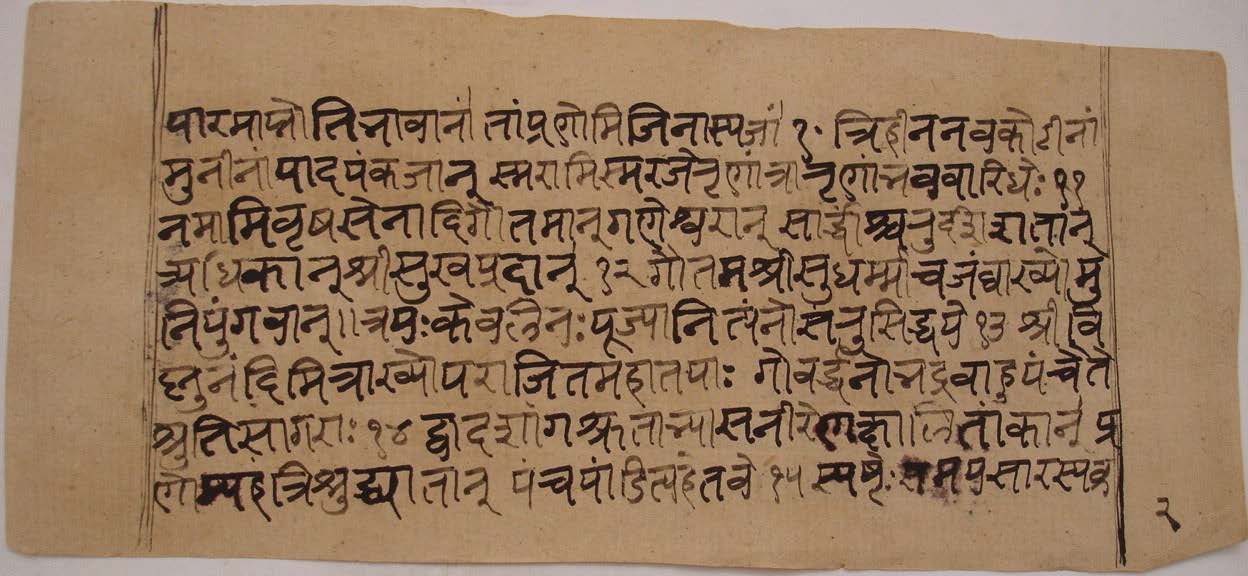 पारमाप्नोति भावानां तां प्रणोमि जिनास्यजां १० त्रिहीननवकोटीनां
मुनीनां पादपंकजान् स्मरामि स्मरजेतृणां त्रातृणां भववारिधेः ११
नमामि वृषसेनादिगौतमान् गणेश्वरान् सार्द्धाश्चतुर्दशशतान्
अधिकान् श्रीसुखप्रदान् १२ गौतमश्रीसुधर्म्माच जंब्वाख्यो मु
निपुंगवान्।। त्रयः केवलिनः पूज्या नित्यं नो संतु सिद्धये १३ श्रीवि
ष्नुनंदिमित्राख्योपराजितमहातपाः गोवर्द्धनो भद्रबाहु पंचैते
श्रुतिसागराः १४ द्वादशांग
प्र
णोम्यहं त्रिशुद्ध्या तान् पंच पांडित्यहेतवे १५
२